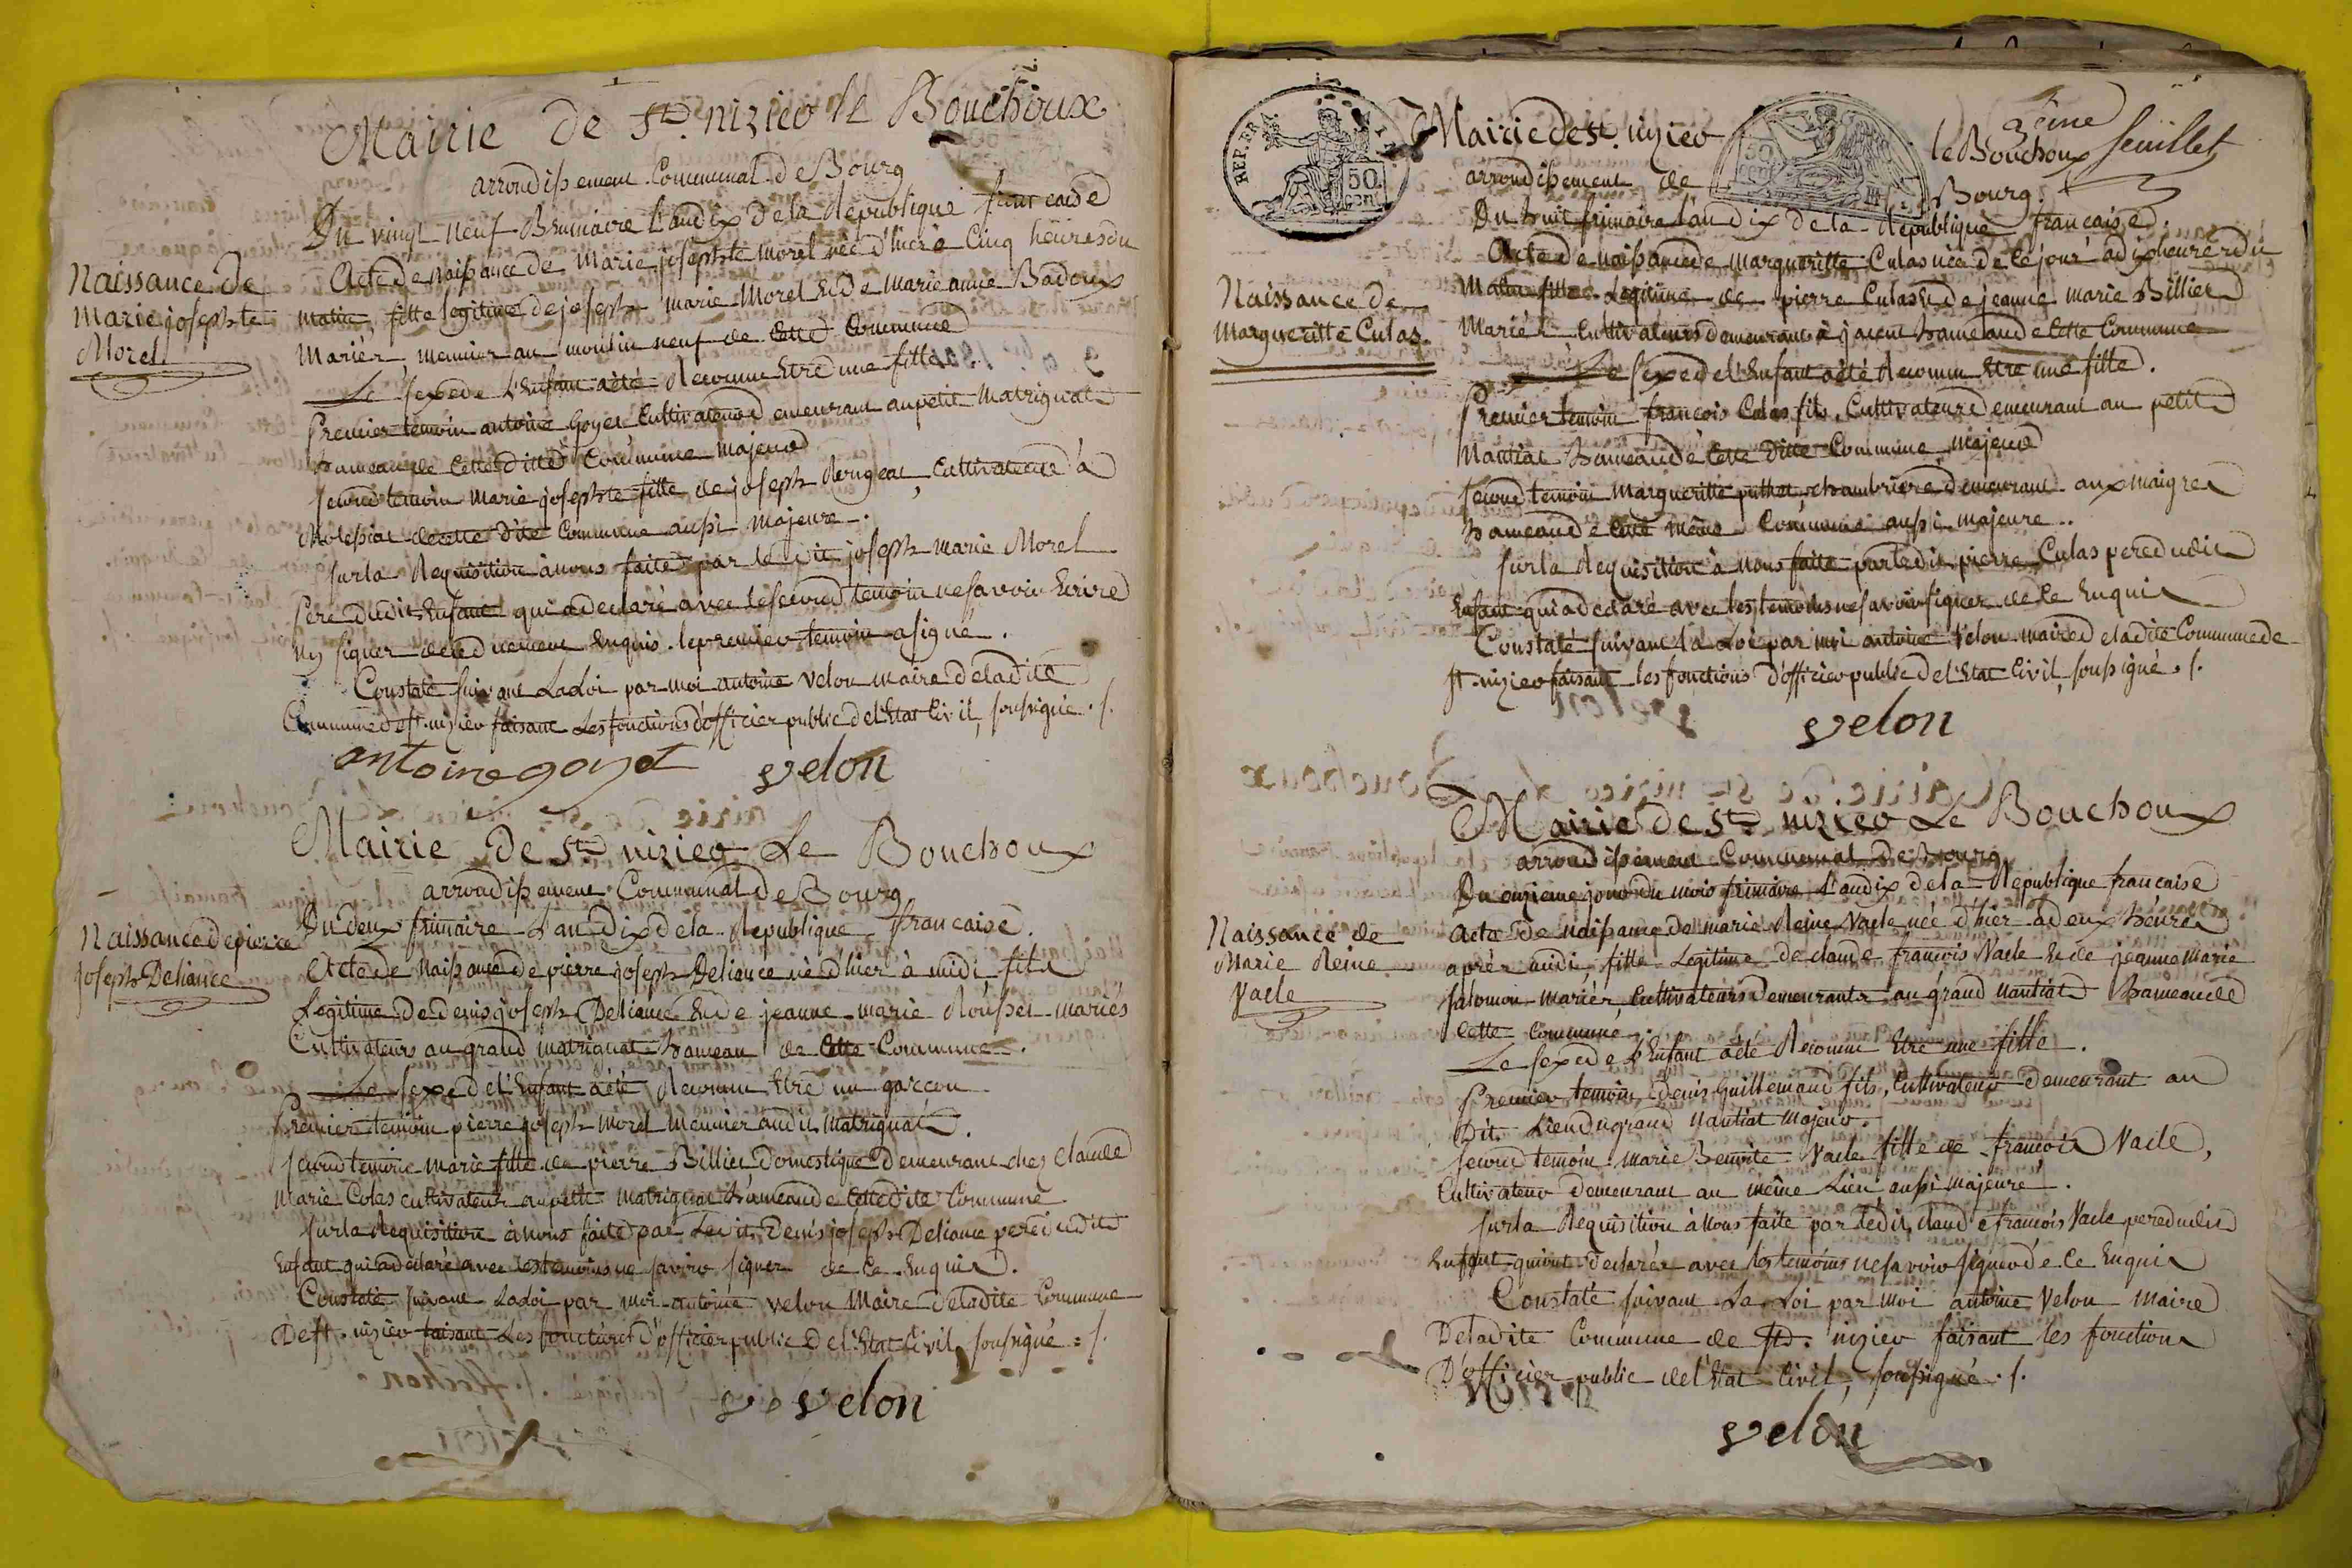 Mairie de St. nizier le Bouchoux
arrondissement Communal de Bourg
Du vingt neuf Brumaire l'an dix de la Republique francaise
Naissance de
Marie josephte
Morel
Acte de naissance de Marie josephte morel née d'hier à Cinq heures du
matin, fille legitime de joseph marie Morel et de marie anne Badoux
Mariés, meunier au moulin neuf de Cette Commune
Le sexe de L'Enfant a été Reconnu Etre une fille.
Premier temoin antoine Goyet Cultivateur demeurant au petit Matrignat
hameau de Cette ditte Commune majeur
second temoin Marie josephte fille de joseph Rougeat, Cultivateur à
Molessiat de cette dite Commune aussi Majeure.
sur la Requisition à nous faite par le dit joseph marie Morel
Pere dudit Enfant qui a declaré avec le second temoin ne savoir Ecrire
ny signer de ce duement Enquis. le premier temoin a signé.
Constaté suivant La Loi par moi antoine velon maire de la dite
Commune de st. nizier faisant Les fonctions d'officier public de l'Etat Civil, soussigné ./.
antoine goyet velon
Mairie de St. nizier Le Bouchoux
arrondissement Communal de Bourg
Du deux frimaire L'an Dix de la Republique francaise.
Naissance de pierre
joseph Deliance
Acte de Naissance de pierre joseph Deliance né d'hier à midi fils
Legitime de denis joseph Deliance Et de jeanne marie Rousset mariés
Cultivateurs au grand matrignat hameau de Cette Commune.
Le sexe de l'Enfant a été Reconnu Etre un garcon
Premier temoin pierre joseph Morel Meunier audit Matrignat.
second temoin marie fille de pierre Billiet Domestique Demeurant chez claude
marie Colas cultivateur au petit matrignat hameau de Cette dite Commune
sur la Requisition à nous faite par Le dit Denis joseph Deliance pere dudit
Enfant qui a declaré avec les temoins ne savoir signer de ce Enquis.
Constaté suivant La Loi par moi antoine velon Maire de ladite Commune
De st. nizier faisant Les fonctions d'officier public de l'Etat Civil soussigné ./.
velon
3eme
feuillet
REP. FRA.
50
cent
Mairie de St. nizier le Bouchoux
arrondissement de Bourg.
Du huit frimaire l'an dix de la Republique francaise.
Naissance de
Margueritte Culas
Acte de naissance de margueritte Culas née de ce jour à dix heures du
Matin fille Legitime de pierre Culas Et de jeanne marie Billiet
Mariés Cultivateurs demeurant à hameau de Cette Commune
Le sexe de l'Enfant a été Reconnu Etre une fille.
Premier temoin francois Colas fils, Cultivateur demeurant au petit
Nantiat hameau de Cette ditte Commune majeur
second temoin margueritte puthet chambriere demeurant aux maigres
hameau de Cette même Commune aussi majeure.
sur la Requisition à nous faite par le dit pierre Culas pere dudit
Enfant qui a declaré avec les temoins ne savoir signer de ce Enquis
Constaté suivant la Loi par moi antoine Velon maire de ladite Commune de
st. nizier faisant les fonctions d'officier public de l'Etat Civil, soussigné ./.
velon
Mairie de St. nizier Le Bouchoux
arrondissement Communal de Bourg
Du onzieme jour du mois frimaire L'an dix de la Republique francaise
Naissance de
Marie Reine
Vacle
Acte de naissance de marie Reine Vacle née d'hier à deux heures
après midi, fille Legitime de claude francois Vacle Et de jeanne Marie
salomon mariés, Cultivateurs Demeurants au grand Nantiat hameau de
Cette Commune.
Le sexe de l'Enfant a été Reconnu Etre une fille.
Premier temoin Denis Guillemaud fils, Cultivateur demeurant au
Dit Lieu du grand Nantiat Majeur.
second temoin marie Benoite Vacle fille de francois Vacle,
Cultivateur demeurant au même Lieu aussi majeure.
sur la Requisition à Nous faite par Ledit claude francois Vacle pere dudit
Enfant qui ont declarés avec les temoins ne savoir signer de Ce Enquis
Constaté suivant La Loi par moi antoine Velon Maire
De ladite Commune de St. nizier faisant les fonctions
D'officier public de l'Etat Civil, soussigné ./.
velon